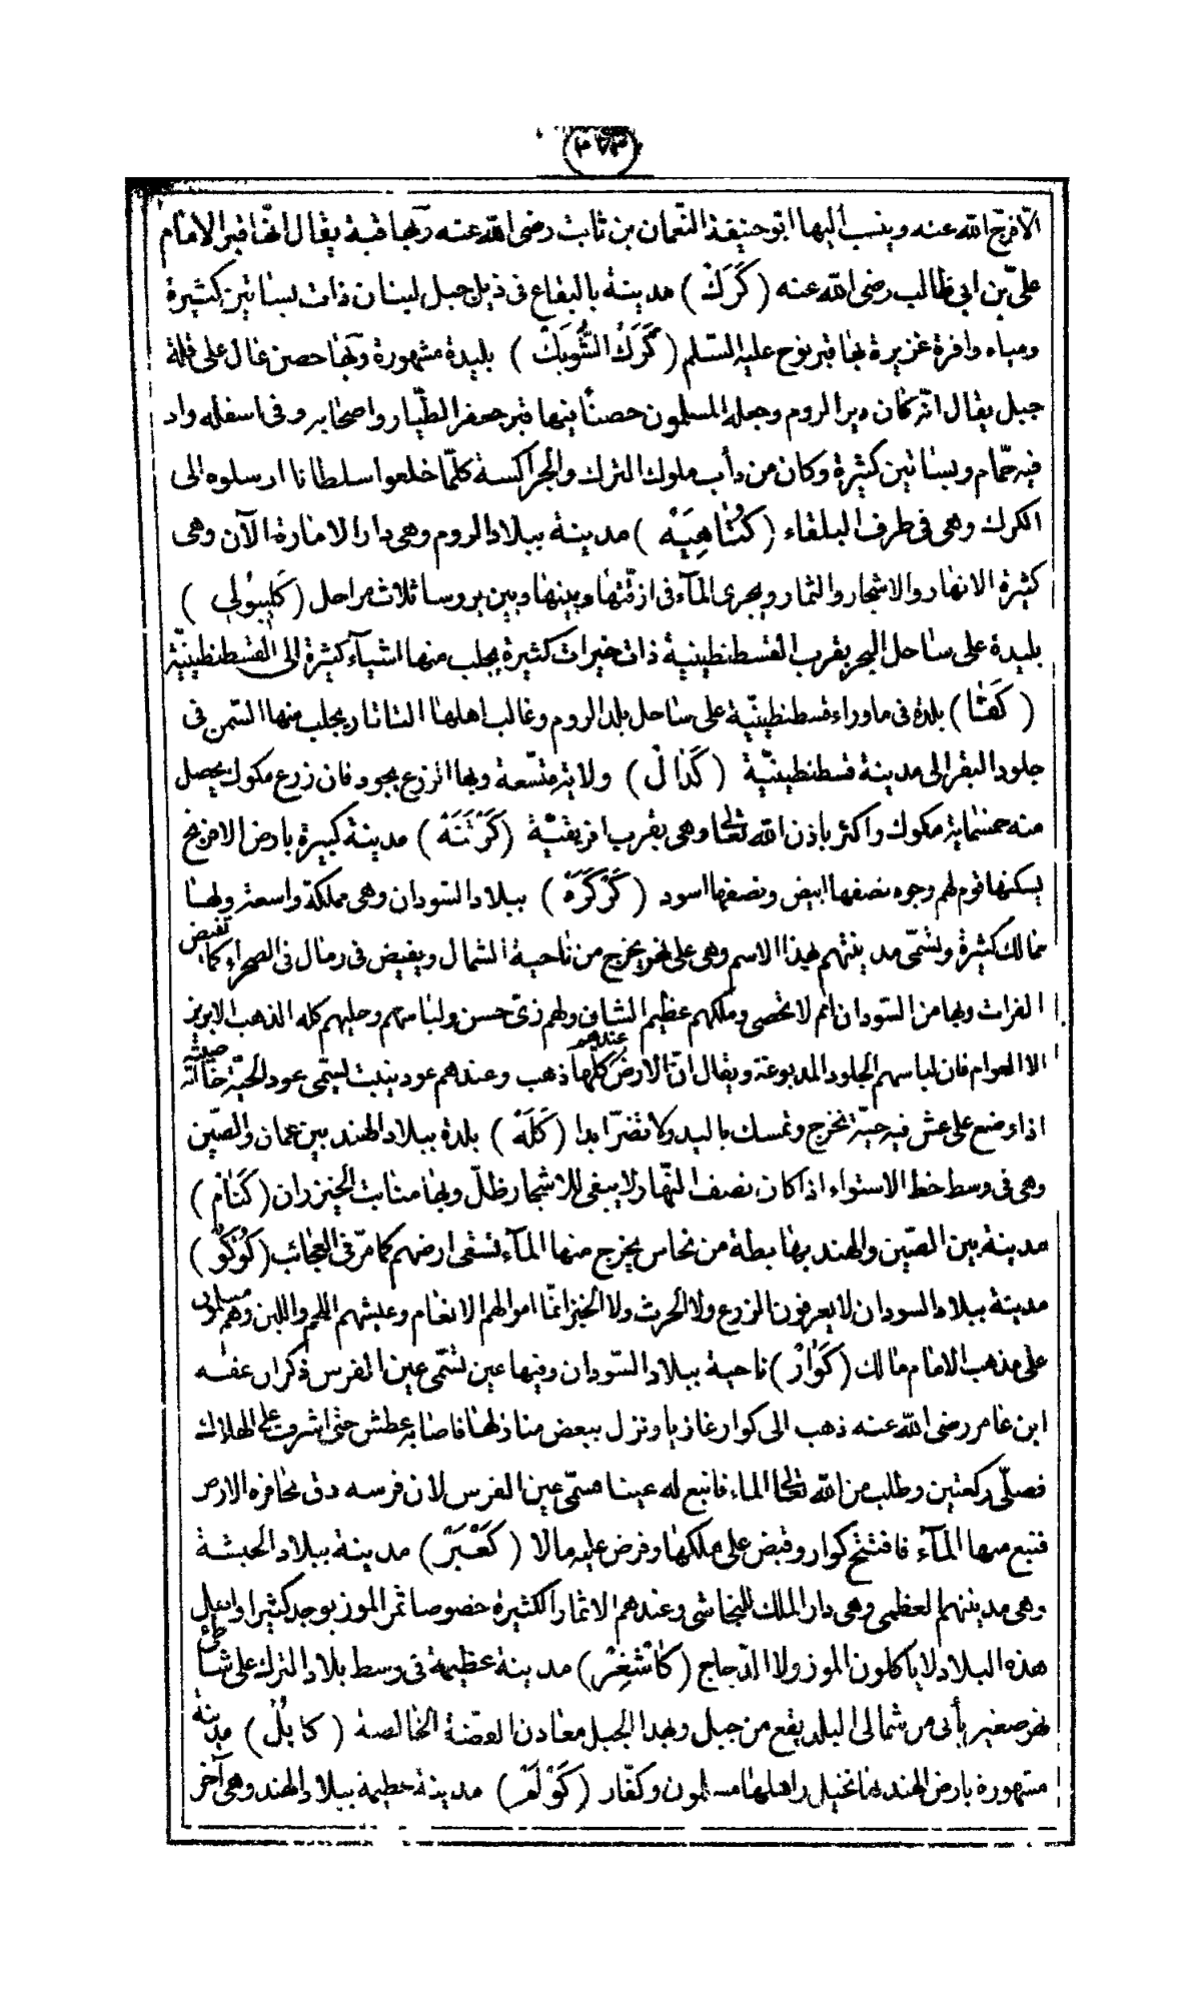 ٤٧٣
الّا فرّج الله عنه وينسب اليها ابو حنيفة النّعمان بن ثابت رضى الله عنه وبها قبة يقال انّها قبر الامام
علىّ بن ابى طالب رضى الله عنه (كَرَكْ) مدينة بالبقاع فى ذيل جبل لبنان ذات بساتين كثيرة
ومياه وافرة غزيرة بها قبر نوح عليه السّلم (كَرَكُ الشَّوبَكْ) بليدة مشهورة وبها حصن عال على قلة
جبل يقال انّه كان ديرا لروم وجعله المسلمون حصنًا بنها قبر جعفر الطّيار واصحابه وفى اسفله واد
فيه حمّام وبساتين كثيرة وكان من دأب ملوك الترك والجراكسة كلّما خلعوا سلطانا ارسلوه الى
الكرك وهى فى طرف البلقاء (كُتَاهِيَهْ) مدينة ببلاد الروم وهى دار الامارة الآن وهى
كثيرة الانهار والاشجار والثمار ويجرى المآء فى ازقّتها وبينها وبين بروسا ثلاث مراحل (كَلِيبُولِي)
بليدة على ساحل البحر بقرب القسطنطينية ذات خيرات كثيرة يجلب منها اشيآء كثيرة الى القسطنطينيّة
(كَفَا) بلدة فى ماوراء قسطنطينيّة على ساحل بلد الروم وغالب اهلها التاتار يجلب منها السّمن فى
جلود البقر الى مدينة قسطنطينيّة (كَدَالْ) ولاية متّسعة وبها الزرع يجود فان زرع مكوك يحصل
منه خمسمائة مكوك واكثر باذن الله تعالى وهى بقرب افريقيّة (كَرْثَنَهْ) مدينة كبيرة بارض الافرنج
يسكنها قوم لهم وجوه نصفها ابيض ونصفها اسود (كَرْكَرَهْ) ببلاد السّودان وهى مملكة واسعة ولها
ممالك كثيرة وتسّمى مدينتهم بهذا الاسم وهى على نهر يخرج من ناحية الشمال ويفيض فى رمال فى الصحراء كما تفيض
الفرات وبها من السّودان امم لا تحصى وملكهم عظيم الشان ولهم زىّ حسن ولباسهم وحليهم كله الذهب الابريز
الا العوام فان لباسهم الجلود المدبوغة ويقال انّ الارض كلّها عندهم ذهب وعندهم عود ينبت يسمّى عود الحيّة خاصيته انّه
اذا وضع على عش فيه حيّة تخرج وتمسك باليد ولا تضرّ ابدا (كَلَهْ) بلدة ببلاد الهند بين عمان والصّين
وهى فى وسط خط الاستواء اذا كان نصف النّهار لا يبقى للاشجار ظلّ وبها منابت الخيزران (كَنَامْ)
مدينة بين الصّين والهند بها بطة من نحاس يخرج منها المآء تسقى ارضهم كما مرّ فى العجائب (كُوْكَوْ)
مدينة ببلاد السودان لا يعرفون الزرع ولا الحرث ولا الخبز انّما اموالهم الانعام وعيشهم اللحم واللبن وهم مسلمون
على مذهب الامام مالك (كَوَارْ) ناحية ببلاد السّودان وفيها عين تسّمى عين الفرس ذكر ان عقبة
ابن عامر رضى الله عنه ذهب الى كوار غازيا ونزل ببعض منازلها فاصابه عطش حتى اشرف على الهلاك
فصلّى ركعتين وطلب من الله تعالى الماء فانبع له عينا فسمّى عين الفرس لان فرسه دق بحافره الارض
فنبع منها المآء فافتتح كوار وقبض على ملكها وفرض عليه مالا (كَعْبَرْ) مدينة ببلاد الحبشة
وهى مدينتهم العظمى وهى دار الملك للنجاشى وعندهم الاثمار الكثيرة خصوصا ثمر الموز يوجد كثيرا واهل
هذه البلاد لا ياكلون الموز ولا الدّجاج (كَاشْغِرْ) مدينة عظيمة فى وسط بلاد الترك على شاطئ
نهر صغير يأتى من شمالى البلد يقع من جبل وبهذا الجبل معادن الفضّة الخالصة (كابُلْ) مدينة
مشهورة بارض الهند بها نخيل واهلها مسلمون وكفّار (كَوْلَمْ) مدينة عظيمة ببلاد الهند وهى آخر